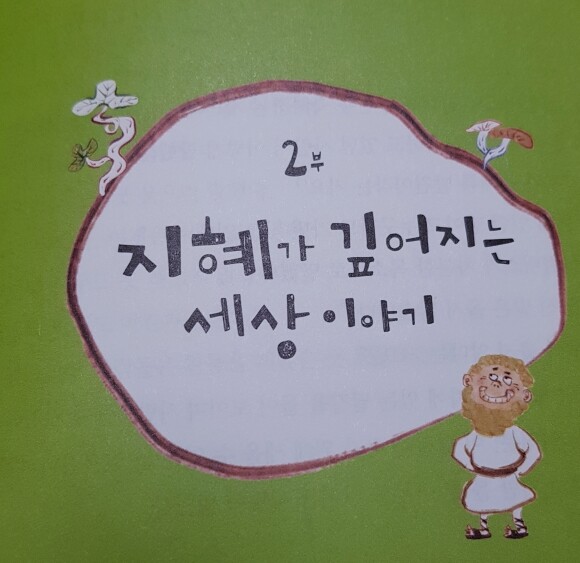 2부
지혜가 깊어지는
세상 이야기